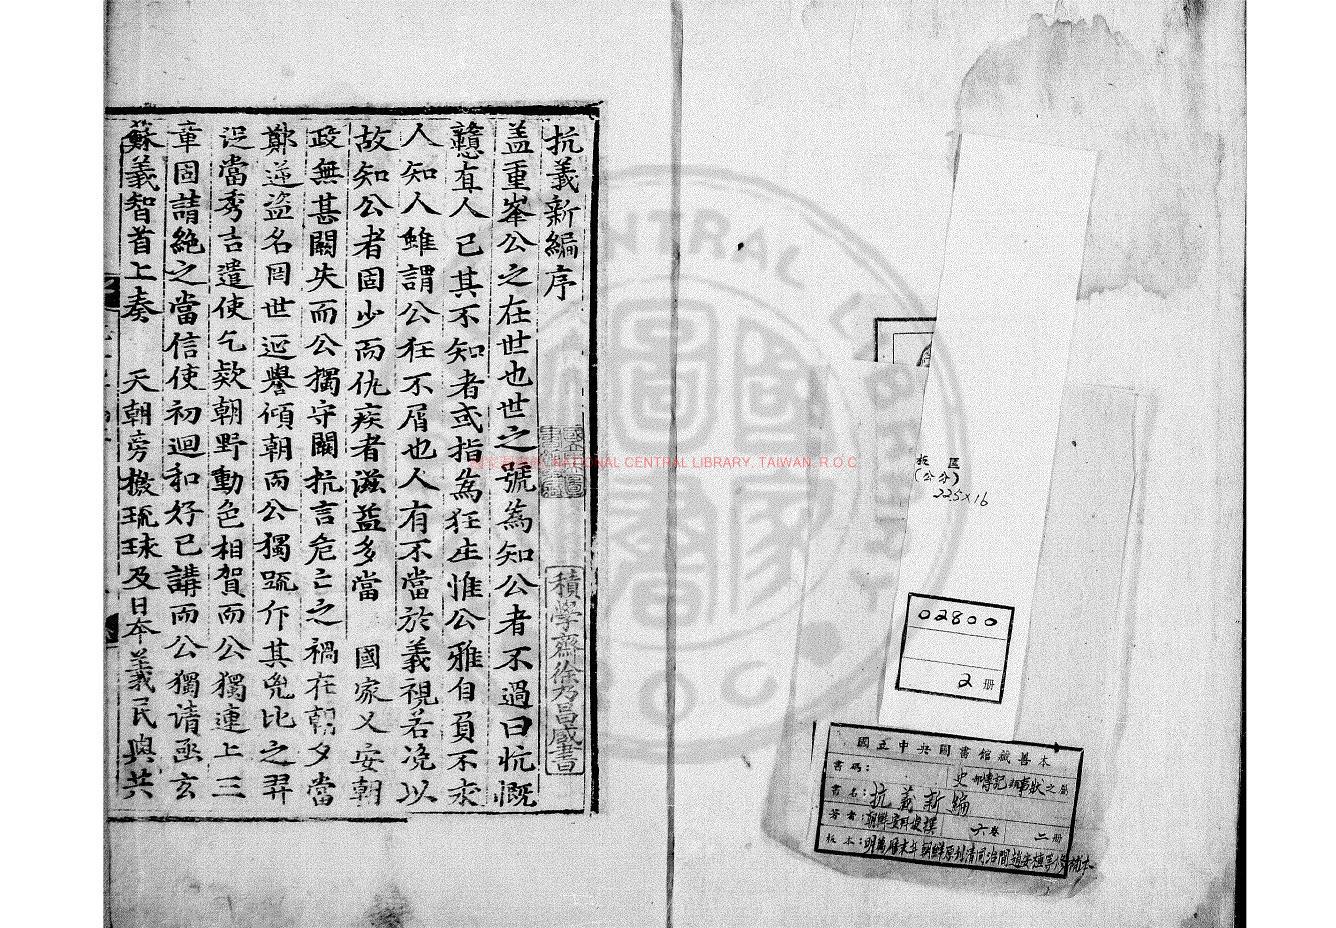 抗義新編序
盖重峯公之在世也世之號為知公者不過曰忼慨
戇直人已其不知者或指為狂生惟公雅自負不求
人知人雖謂公狂不屑也人有不當於義視若凂以
故知公者固少而仇疾者滋益多當 國家乂安朝
政無甚闕失而公獨守闕抗言危亡之禍在朝夕當
鄭逆盜名罔世逛譽傾朝而公獨疏斥其兇比之羿
浞當秀吉遣使乞欵朝野動色相賀而公獨連上三
章固請絶之當信使初迴和好已講而公獨请亟玄
蘇義智首上奏 天朝旁檄琉球及日本義民與共
積學齋徐乃昌藏書
NATIONAL CENTRAL LIBRARY, TAIWAN, R.O.C
板 匡
(公分)
22.5×16
02800
2 册
國立中央圖書館藏善本
書碼:
史部傳記類事狀之屬
書名:抗義新編
著者:朝鮮
六卷
二册
板本:明萬曆末年朝鮮原刊清同治間趙